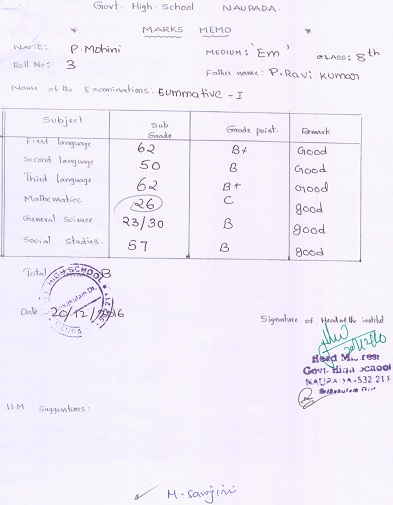 Govt. High. School NAUPADA.
* MARKS MEMO *
NAME: P. Mohini MEDIUM: 'Em' CLASS: 8th
Roll No: 3 Father name: P. Ravi kumar
Name of the Examinations: Summative - I
Subject Sub Grade Grade point. Remark
First language 62 B+ Good
Second language 50 B Good
Third language 62 B+ Good
Mathematics 26 C good
General Science 23/30 B good
Social studies. 57 B good
Total B
HIGH SCHOOL
Srikakulam Dt.
Date:- 20/12/2016
Signature of Head of the institut
Head M
Govt. High School
NAUPADA-532 21
Srikakulam Dist
H.M Suggestions:
M. Sarojini